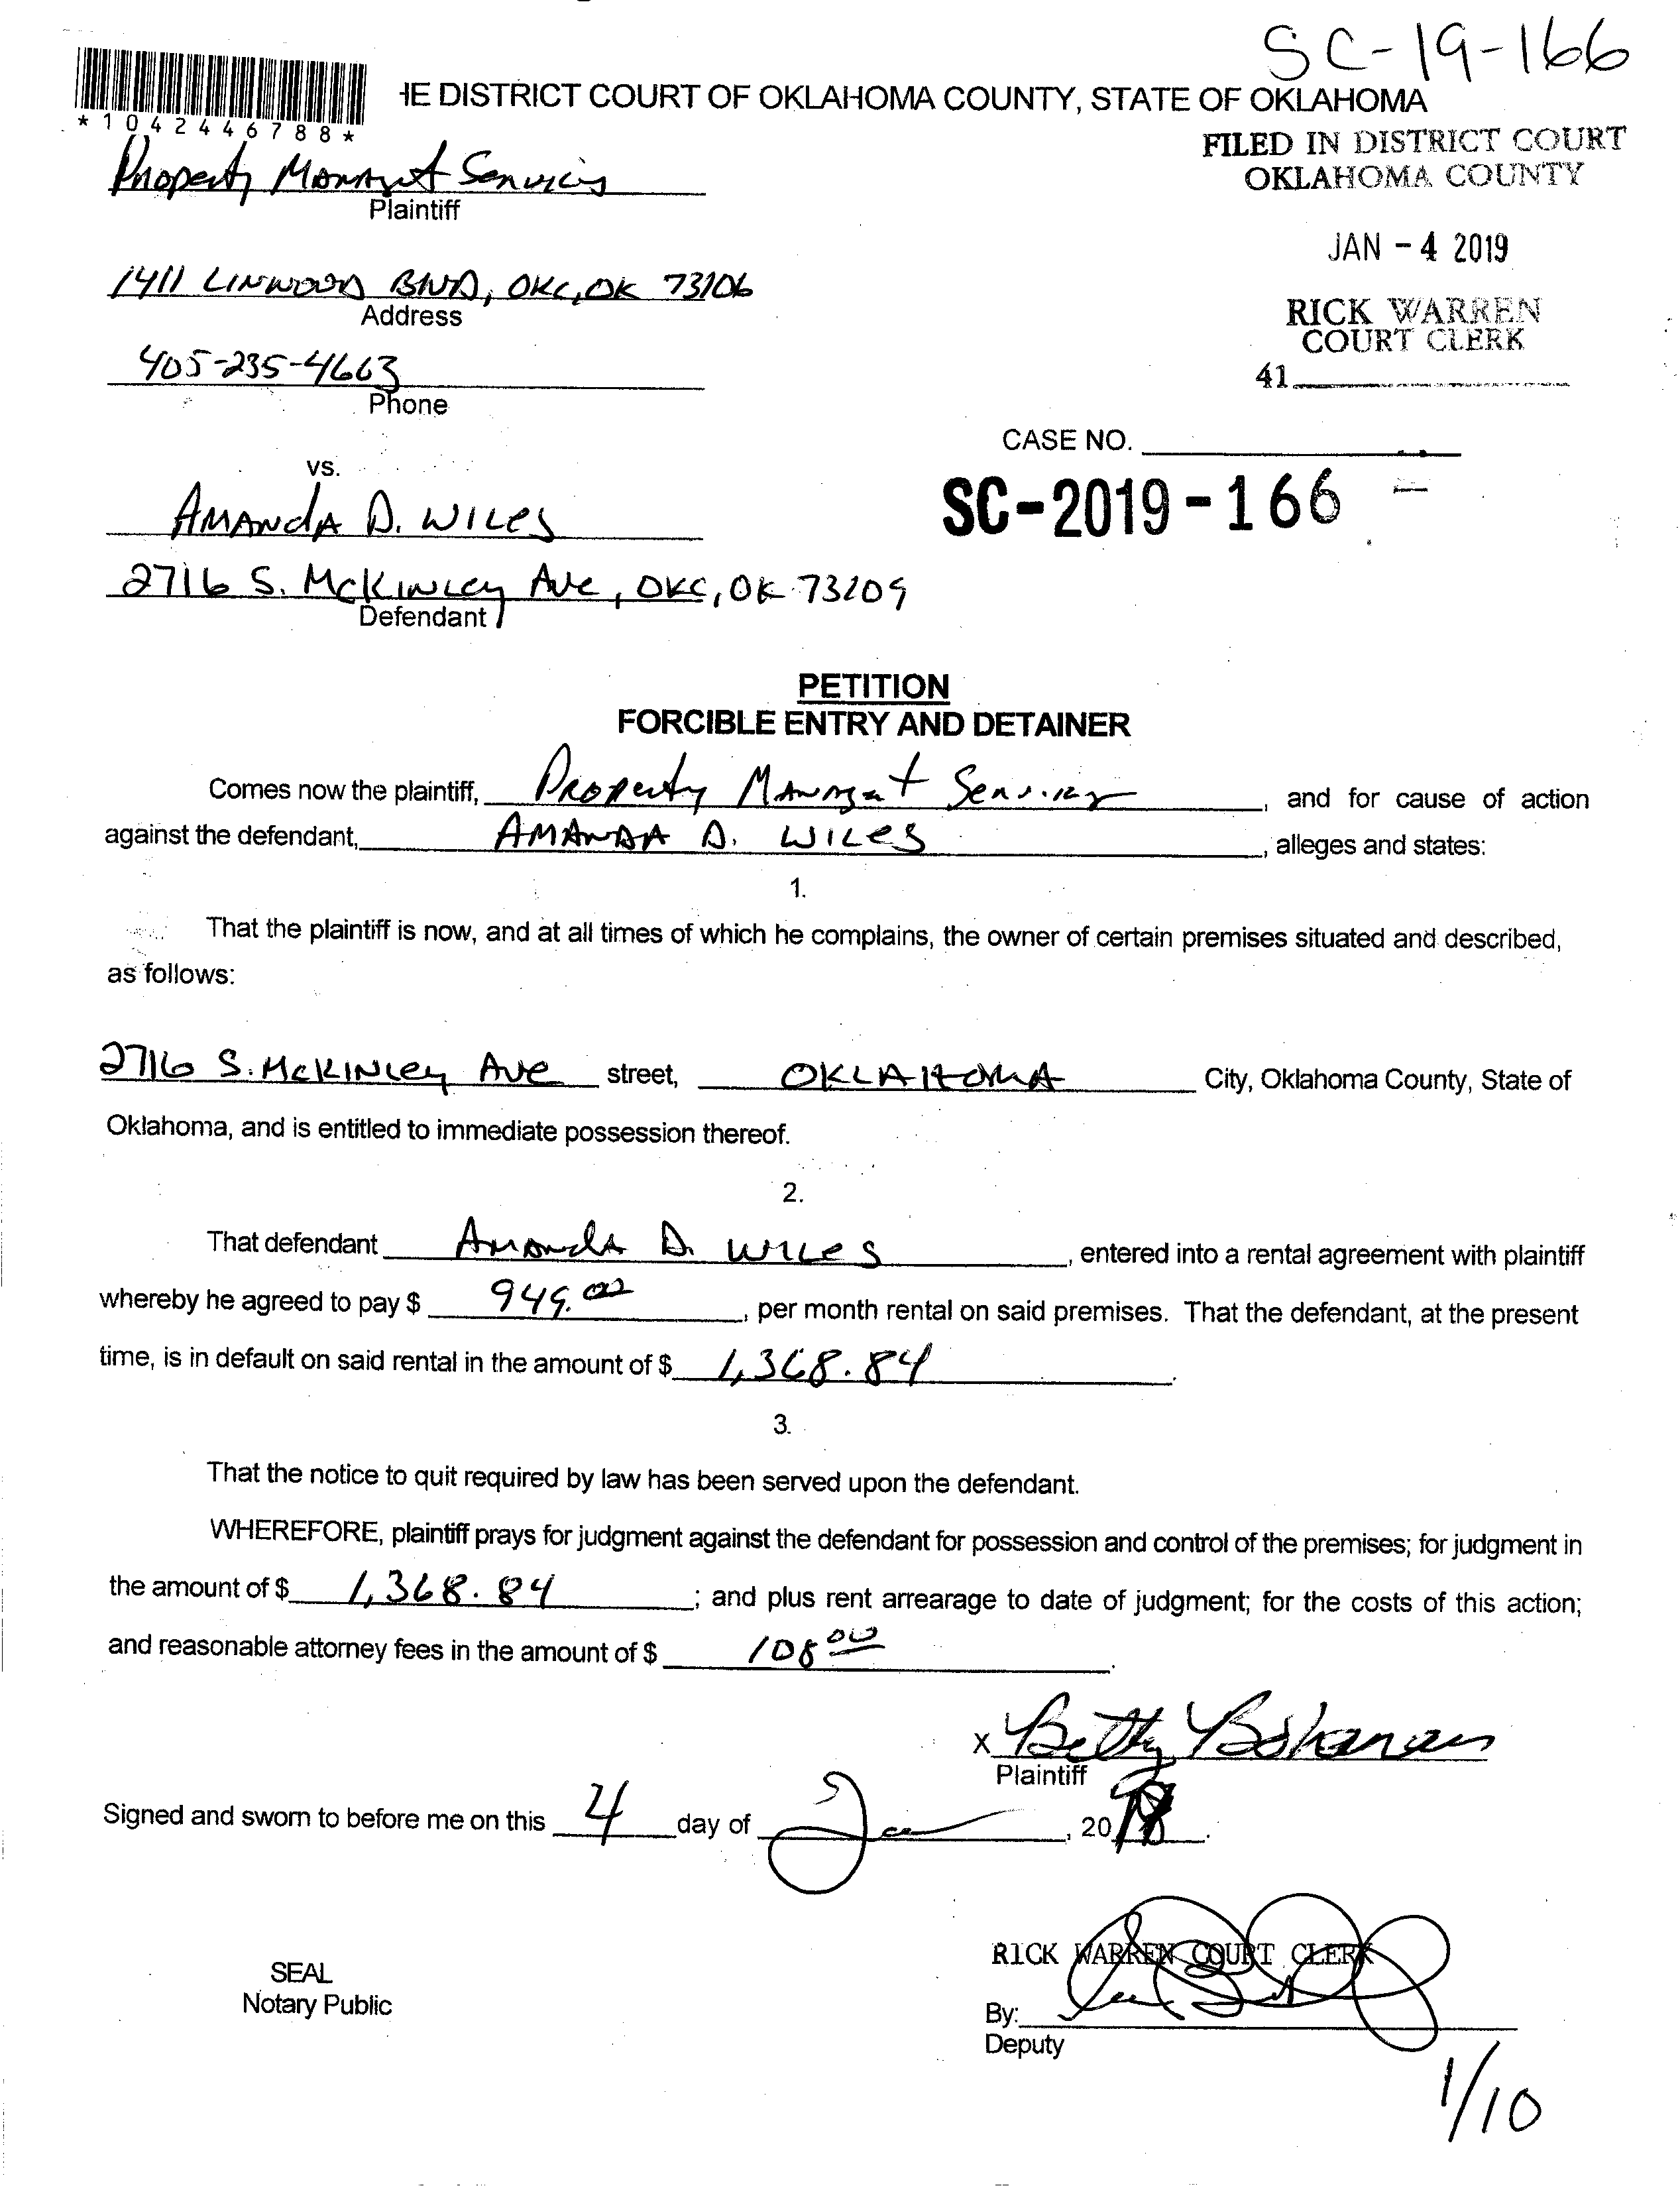 SC-19-166
HE DISTRICT COURT OF OKLAHOMA COUNTY, STATE OF OKLAHOMA
*1042446788*
FILED IN DISTRICT COURT
OKLAHOMA COUNTY
Property Managmt Services
Plaintiff
JAN - 4 2019
1411 LINWOOD BLVD, OKC, OK 73106
Address
RICK WARREN
COURT CLERK
405-235-4663
Phone
41
CASE NO.
vs.
SC-2019-166
AMANDA D. WILES
2716 S. McKINLEY Ave, OKC, OK 73109
Defendant
PETITION
FORCIBLE ENTRY AND DETAINER
Comes now the plaintiff, Property Managmt Services, and for cause of action
against the defendant, AMANDA D. WILES, alleges and states:
1.
That the plaintiff is now, and at all times of which he complains, the owner of certain premises situated and described,
as follows:
2716 S. McKINLEY Ave street, OKLAHOMA City, Oklahoma County, State of
Oklahoma, and is entitled to immediate possession thereof.
2.
That defendant Amanda D. WILES, entered into a rental agreement with plaintiff
whereby he agreed to pay $ 949.00, per month rental on said premises. That the defendant, at the present
time, is in default on said rental in the amount of $ 1,368.84.
3.
That the notice to quit required by law has been served upon the defendant.
WHEREFORE, plaintiff prays for judgment against the defendant for possession and control of the premises; for judgment in
the amount of $ 1,368.84; and plus rent arrearage to date of judgment; for the costs of this action;
and reasonable attorney fees in the amount of $ 108 00.
X Betty Bohanan
Plaintiff
Signed and sworn to before me on this 4 day of Jan, 20
RICK WARREN COURT CLERK
SEAL
Notary Public
By:
Deputy
1/10